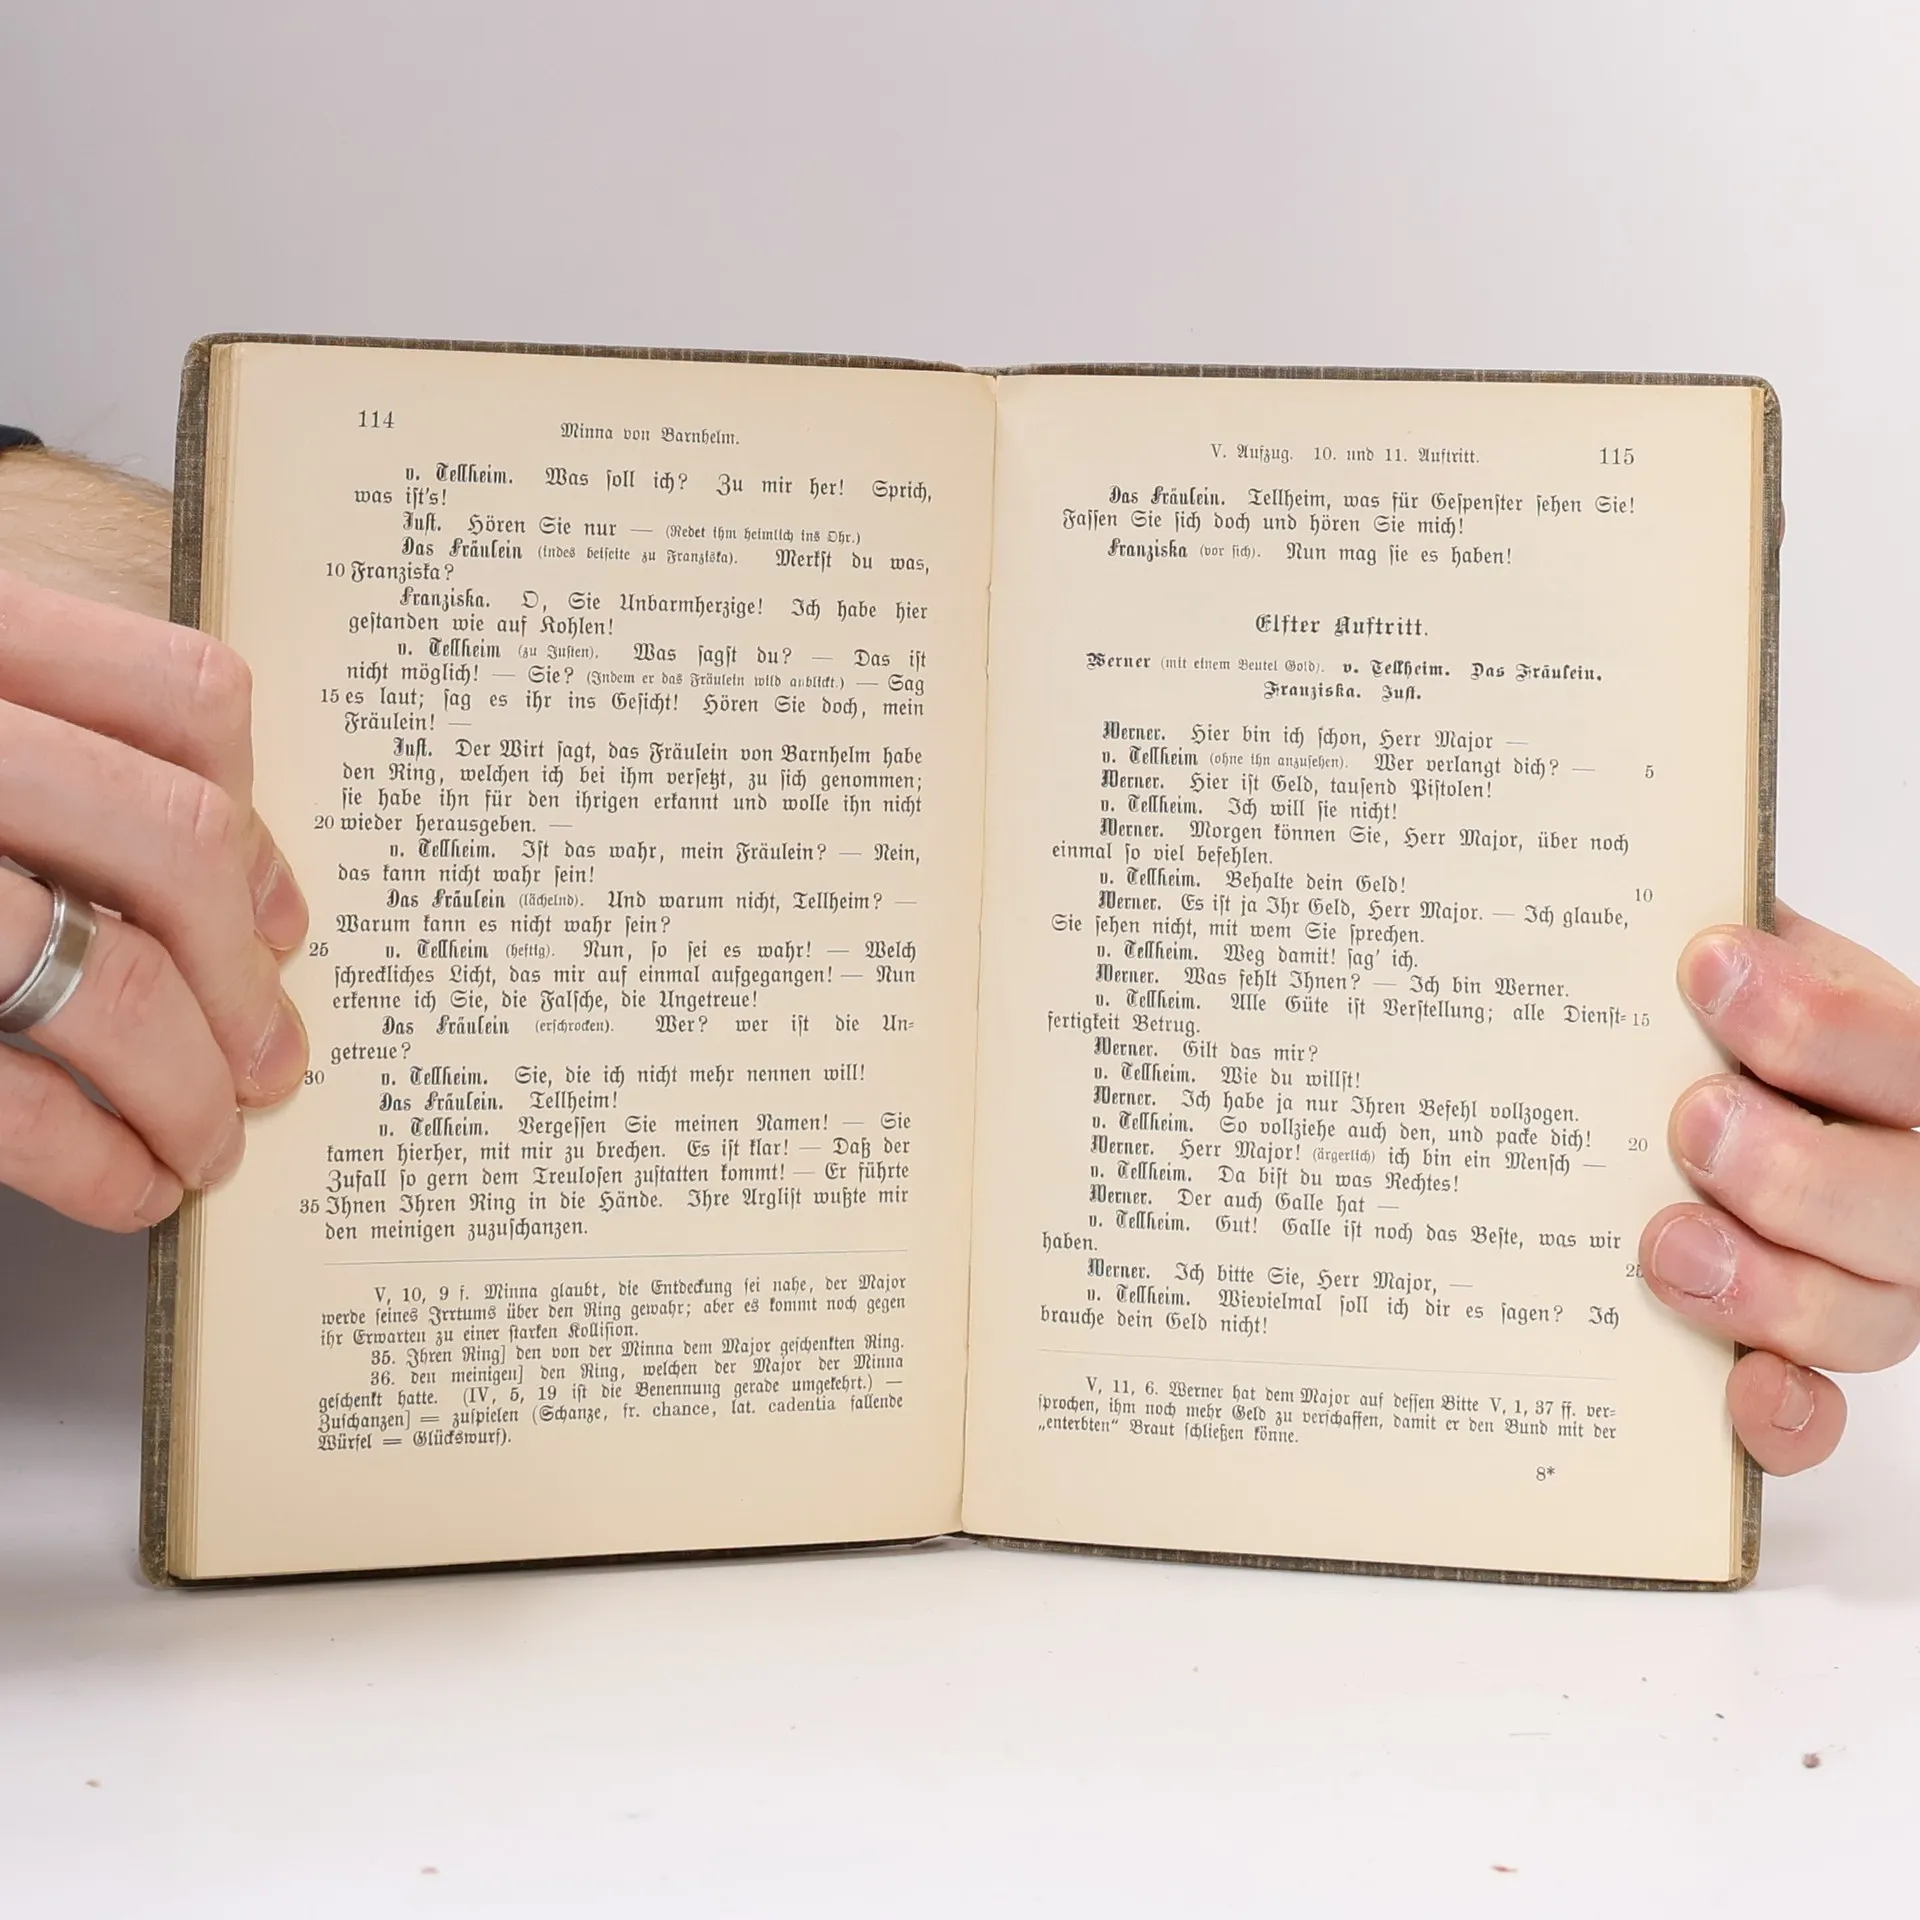 114
Minna von Barnhelm.
v. Tellheim. Was ſoll ich? Zu mir her! Sprich,
was iſt's!
Juſt. Hören Sie nur — (Redet ihm heimlich ins Ohr.)
Das Fräulein (indes beiſeite zu Franziska). Merkſt du was,
10 Franziska?
Franziska. O, Sie Unbarmherzige! Ich habe hier
geſtanden wie auf Kohlen!
v. Tellheim (zu Juſten). Was ſagſt du? — Das iſt
nicht möglich! — Sie? (Indem er das Fräulein wild anblickt.) — Sag
15 es laut; ſag es ihr ins Geſicht! Hören Sie doch, mein
Fräulein! —
Juſt. Der Wirt ſagt, das Fräulein von Barnhelm habe
den Ring, welchen ich bei ihm verſetzt, zu ſich genommen;
ſie habe ihn für den ihrigen erkannt und wolle ihn nicht
20 wieder herausgeben. —
v. Tellheim. Iſt das wahr, mein Fräulein? — Nein,
das kann nicht wahr ſein!
Das Fräulein (lächelnd). Und warum nicht, Tellheim? —
Warum kann es nicht wahr ſein?
25 v. Tellheim (heftig). Nun, ſo ſei es wahr! — Welch
ſchreckliches Licht, das mir auf einmal aufgegangen! — Nun
erkenne ich Sie, die Falſche, die Ungetreue!
Das Fräulein (erſchrocken). Wer? wer iſt die Un⸗
getreue?
30 v. Tellheim. Sie, die ich nicht mehr nennen will!
Das Fräulein. Tellheim!
v. Tellheim. Vergeſſen Sie meinen Namen! — Sie
kamen hierher, mit mir zu brechen. Es iſt klar! — Daß der
Zufall ſo gern dem Treuloſen zuſtatten kommt! — Er führte
35 Ihnen Ihren Ring in die Hände. Ihre Argliſt wußte mir
den meinigen zuzuſchanzen.
V, 10, 9 f. Minna glaubt, die Entdeckung ſei nahe, der Major
werde ſeines Irrtums über den Ring gewahr; aber es kommt noch gegen
ihr Erwarten zu einer ſtarken Kolliſion.
35. Ihren Ring] den von der Minna dem Major geſchenkten Ring.
36. den meinigen] den Ring, welchen der Major der Minna
geſchenkt hatte. (IV, 5, 19 iſt die Benennung gerade umgekehrt.) —
Zuſchanzen] = zuſpielen (Schanze, fr. chance, lat. cadentia fallende
Würfel = Glückswurf).
V. Aufzug. 10. und 11. Auftritt. 115
Das Fräulein. Tellheim, was für Geſpenſter ſehen Sie!
Faſſen Sie ſich doch und hören Sie mich!
Franziska (vor ſich). Nun mag ſie es haben!
Elfter Auftritt.
Werner (mit einem Beutel Gold). v. Tellheim. Das Fräulein.
Franziska. Juſt.
Werner. Hier bin ich ſchon, Herr Major —
v. Tellheim (ohne ihn anzuſehen). Wer verlangt dich? — 5
Werner. Hier iſt Geld, tauſend Piſtolen!
v. Tellheim. Ich will ſie nicht!
Werner. Morgen können Sie, Herr Major, über noch
einmal ſo viel befehlen.
v. Tellheim. Behalte dein Geld! 10
Werner. Es iſt ja Ihr Geld, Herr Major. — Ich glaube,
Sie ſehen nicht, mit wem Sie ſprechen.
v. Tellheim. Weg damit! ſag' ich.
Werner. Was fehlt Ihnen? — Ich bin Werner.
v. Tellheim. Alle Güte iſt Verſtellung; alle Dienſt⸗ 15
fertigkeit Betrug.
Werner. Gilt das mir?
v. Tellheim. Wie du willſt!
Werner. Ich habe ja nur Ihren Befehl vollzogen.
v. Tellheim. So vollziehe auch den, und packe dich! 20
Werner. Herr Major! (ärgerlich) ich bin ein Menſch —
v. Tellheim. Da biſt du was Rechtes!
Werner. Der auch Galle hat —
v. Tellheim. Gut! Galle iſt noch das Beſte, was wir
haben.
Werner. Ich bitte Sie, Herr Major, — 25
v. Tellheim. Wievielmal ſoll ich dir es ſagen? Ich
brauche dein Geld nicht!
V, 11, 6. Werner hat dem Major auf deſſen Bitte V, 1, 37 ff. ver⸗
ſprochen, ihm noch mehr Geld zu verſchaffen, damit er den Bund mit der
„enterbten“ Braut ſchließen könne.
8*